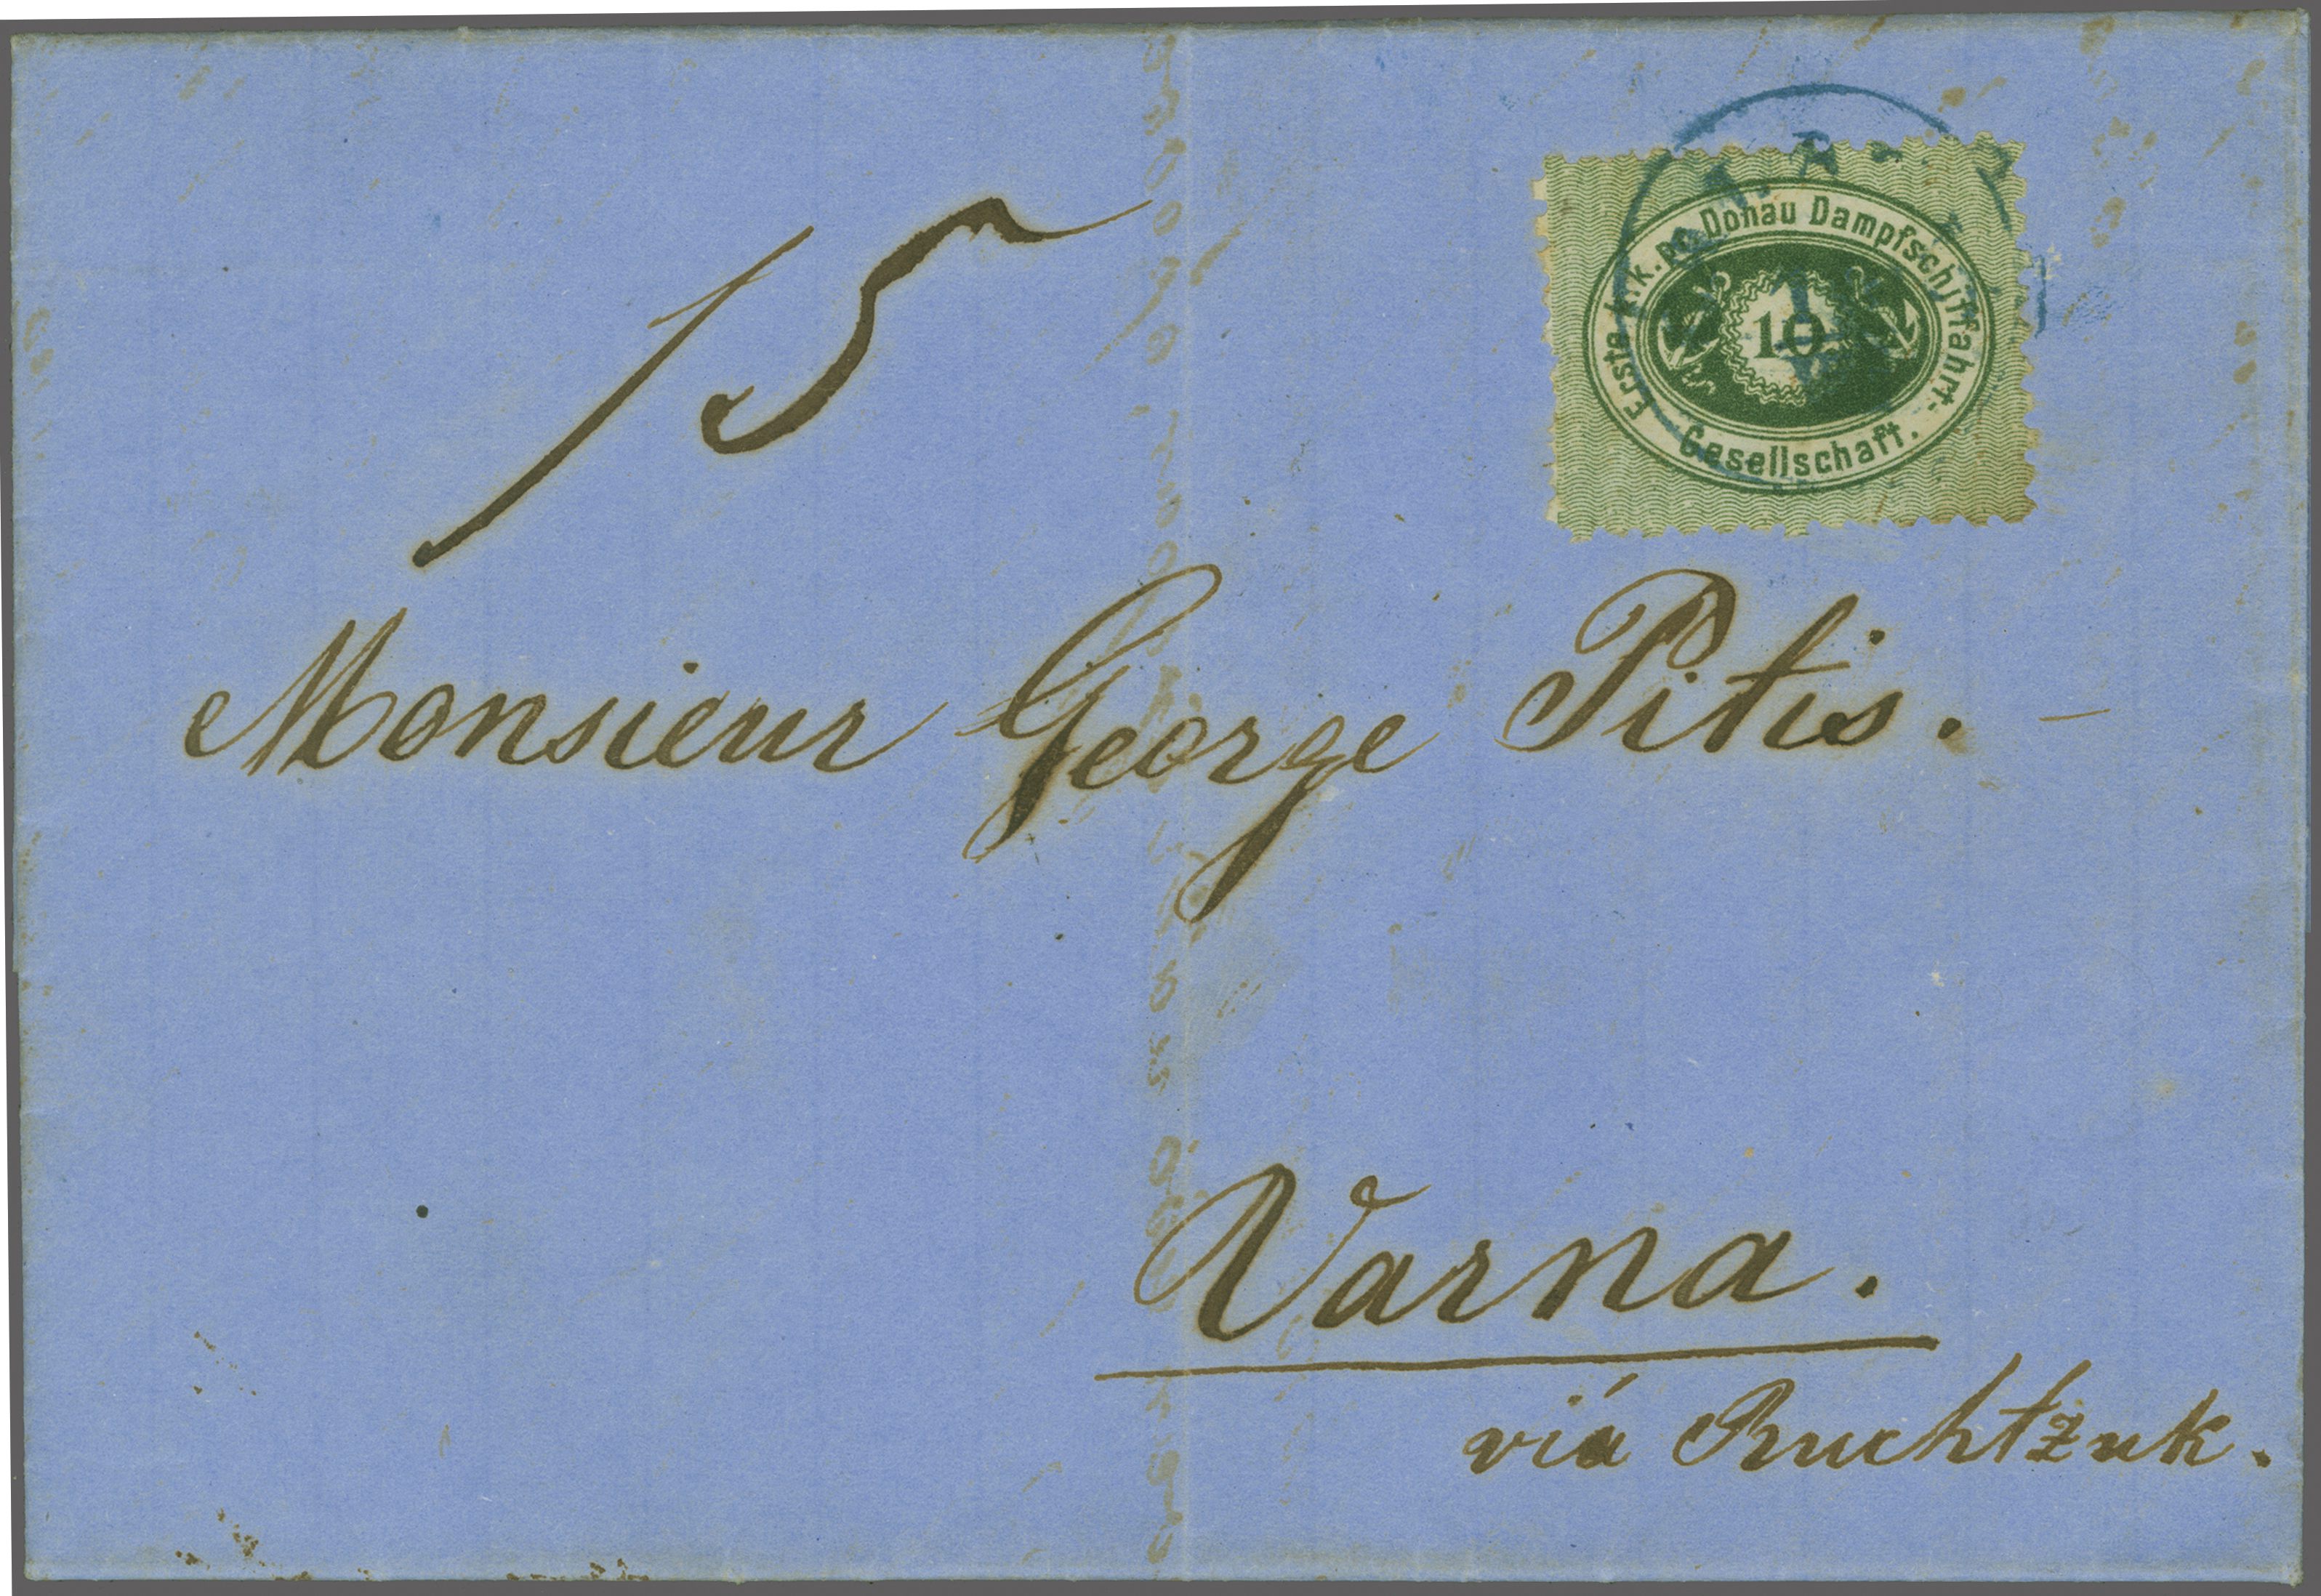 Erste k. k. pr. Donau Dampfschifffahrt-
Gesellschaft.
10
15
Monsieur George Pitis. –
Varna.
viá Ruchtzuk.